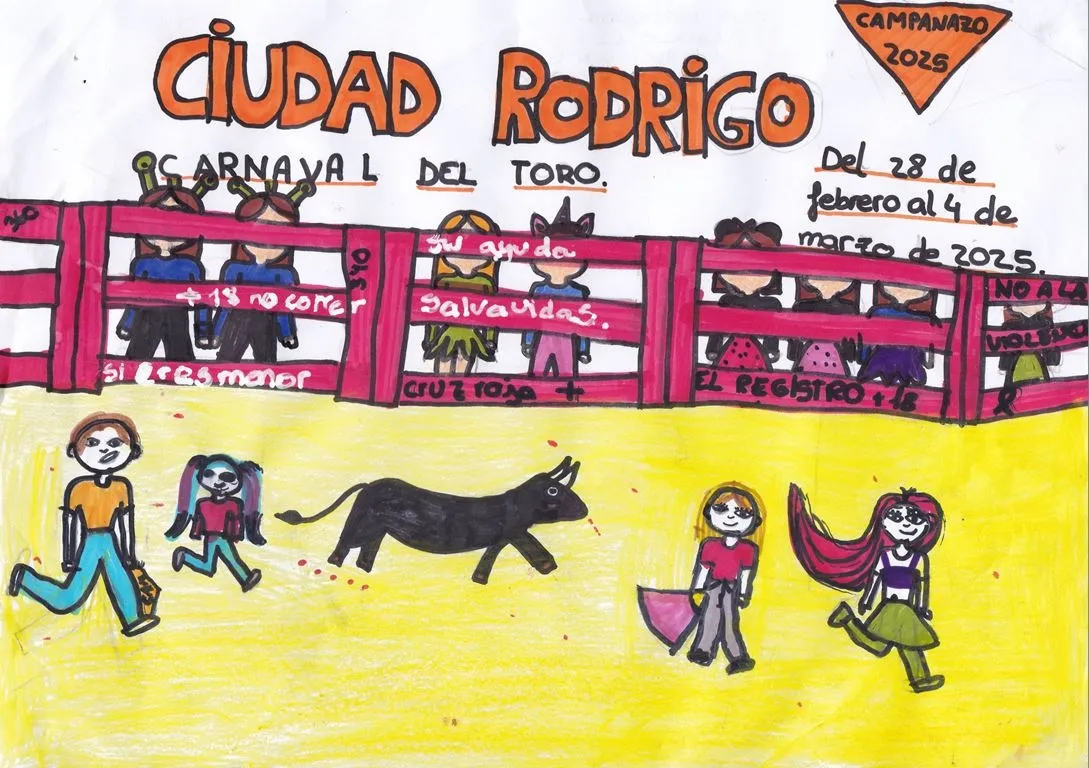 CIUDAD RODRIGO
CAMPANAZO
2025
CARNAVAL DEL TORO.
Del 28 de
febrero al 4 de
marzo de 2025.
su ayuda
salvavidas.
cruz roja +
+18 no correr
si eres menor
EL REGISTRO +18
NO A LA